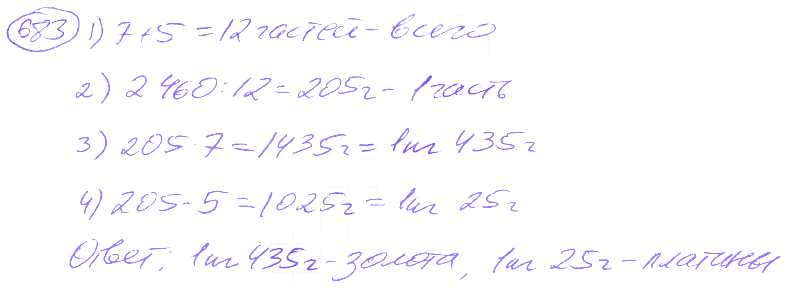 683 1) 7+5=12 частей - всего
2) 2 460:12=205г - 1 часть
3) 205·7=1435г=1кг 435г
4) 205·5=1025г=1кг 25г
Ответ: 1кг 435г - золота, 1кг 25г - платины